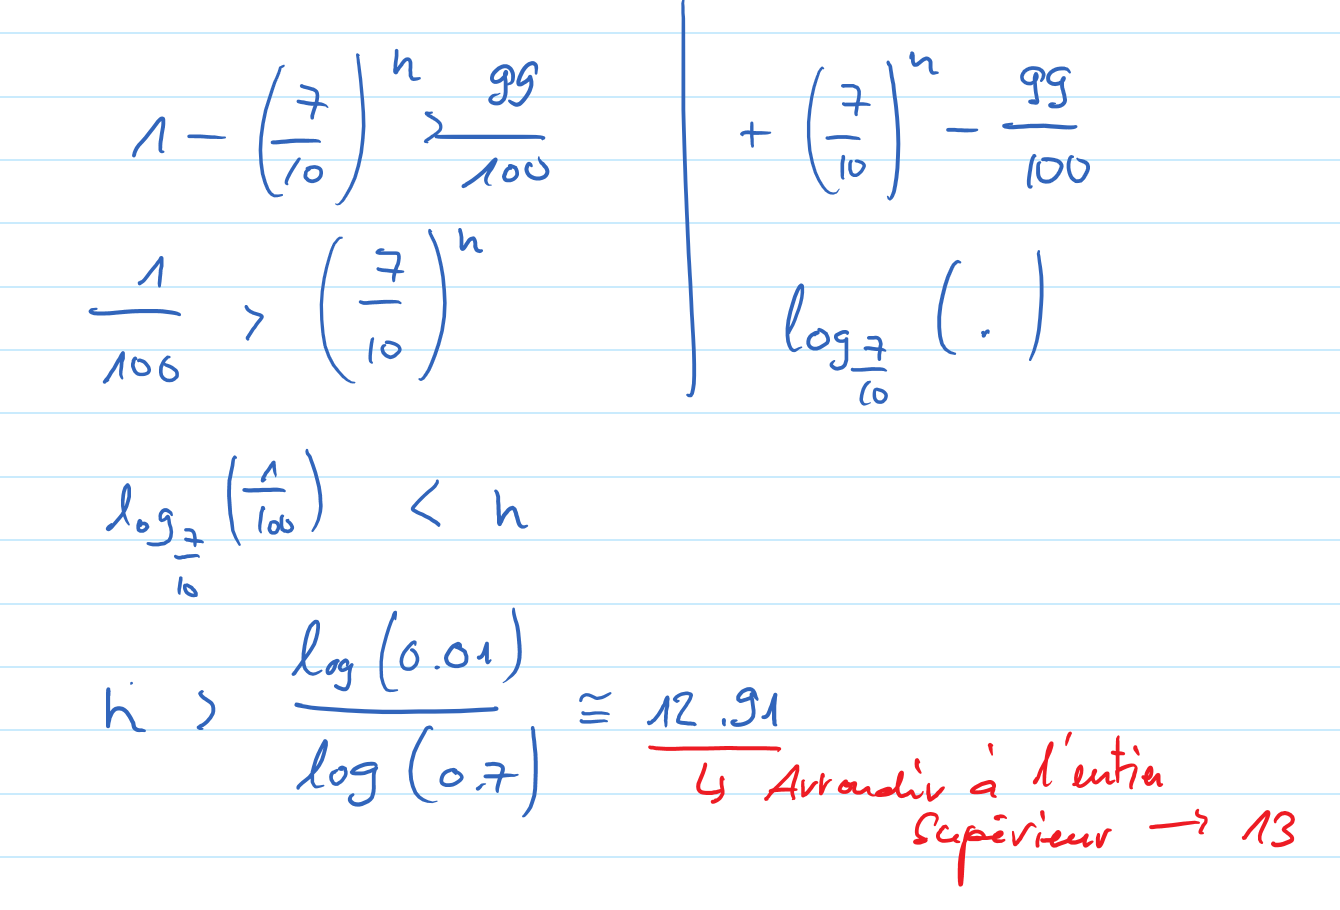 1 - (7/10)^n > 99/100 | + (7/10)^n - 99/100
1/100 > (7/10)^n | log_{7/10} (.)
log_{7/10} (1/100) < n
n > log(0.01)/log(0.7) ≅ 12.91
↳ Arrondir à l'entier
supérieur → 13